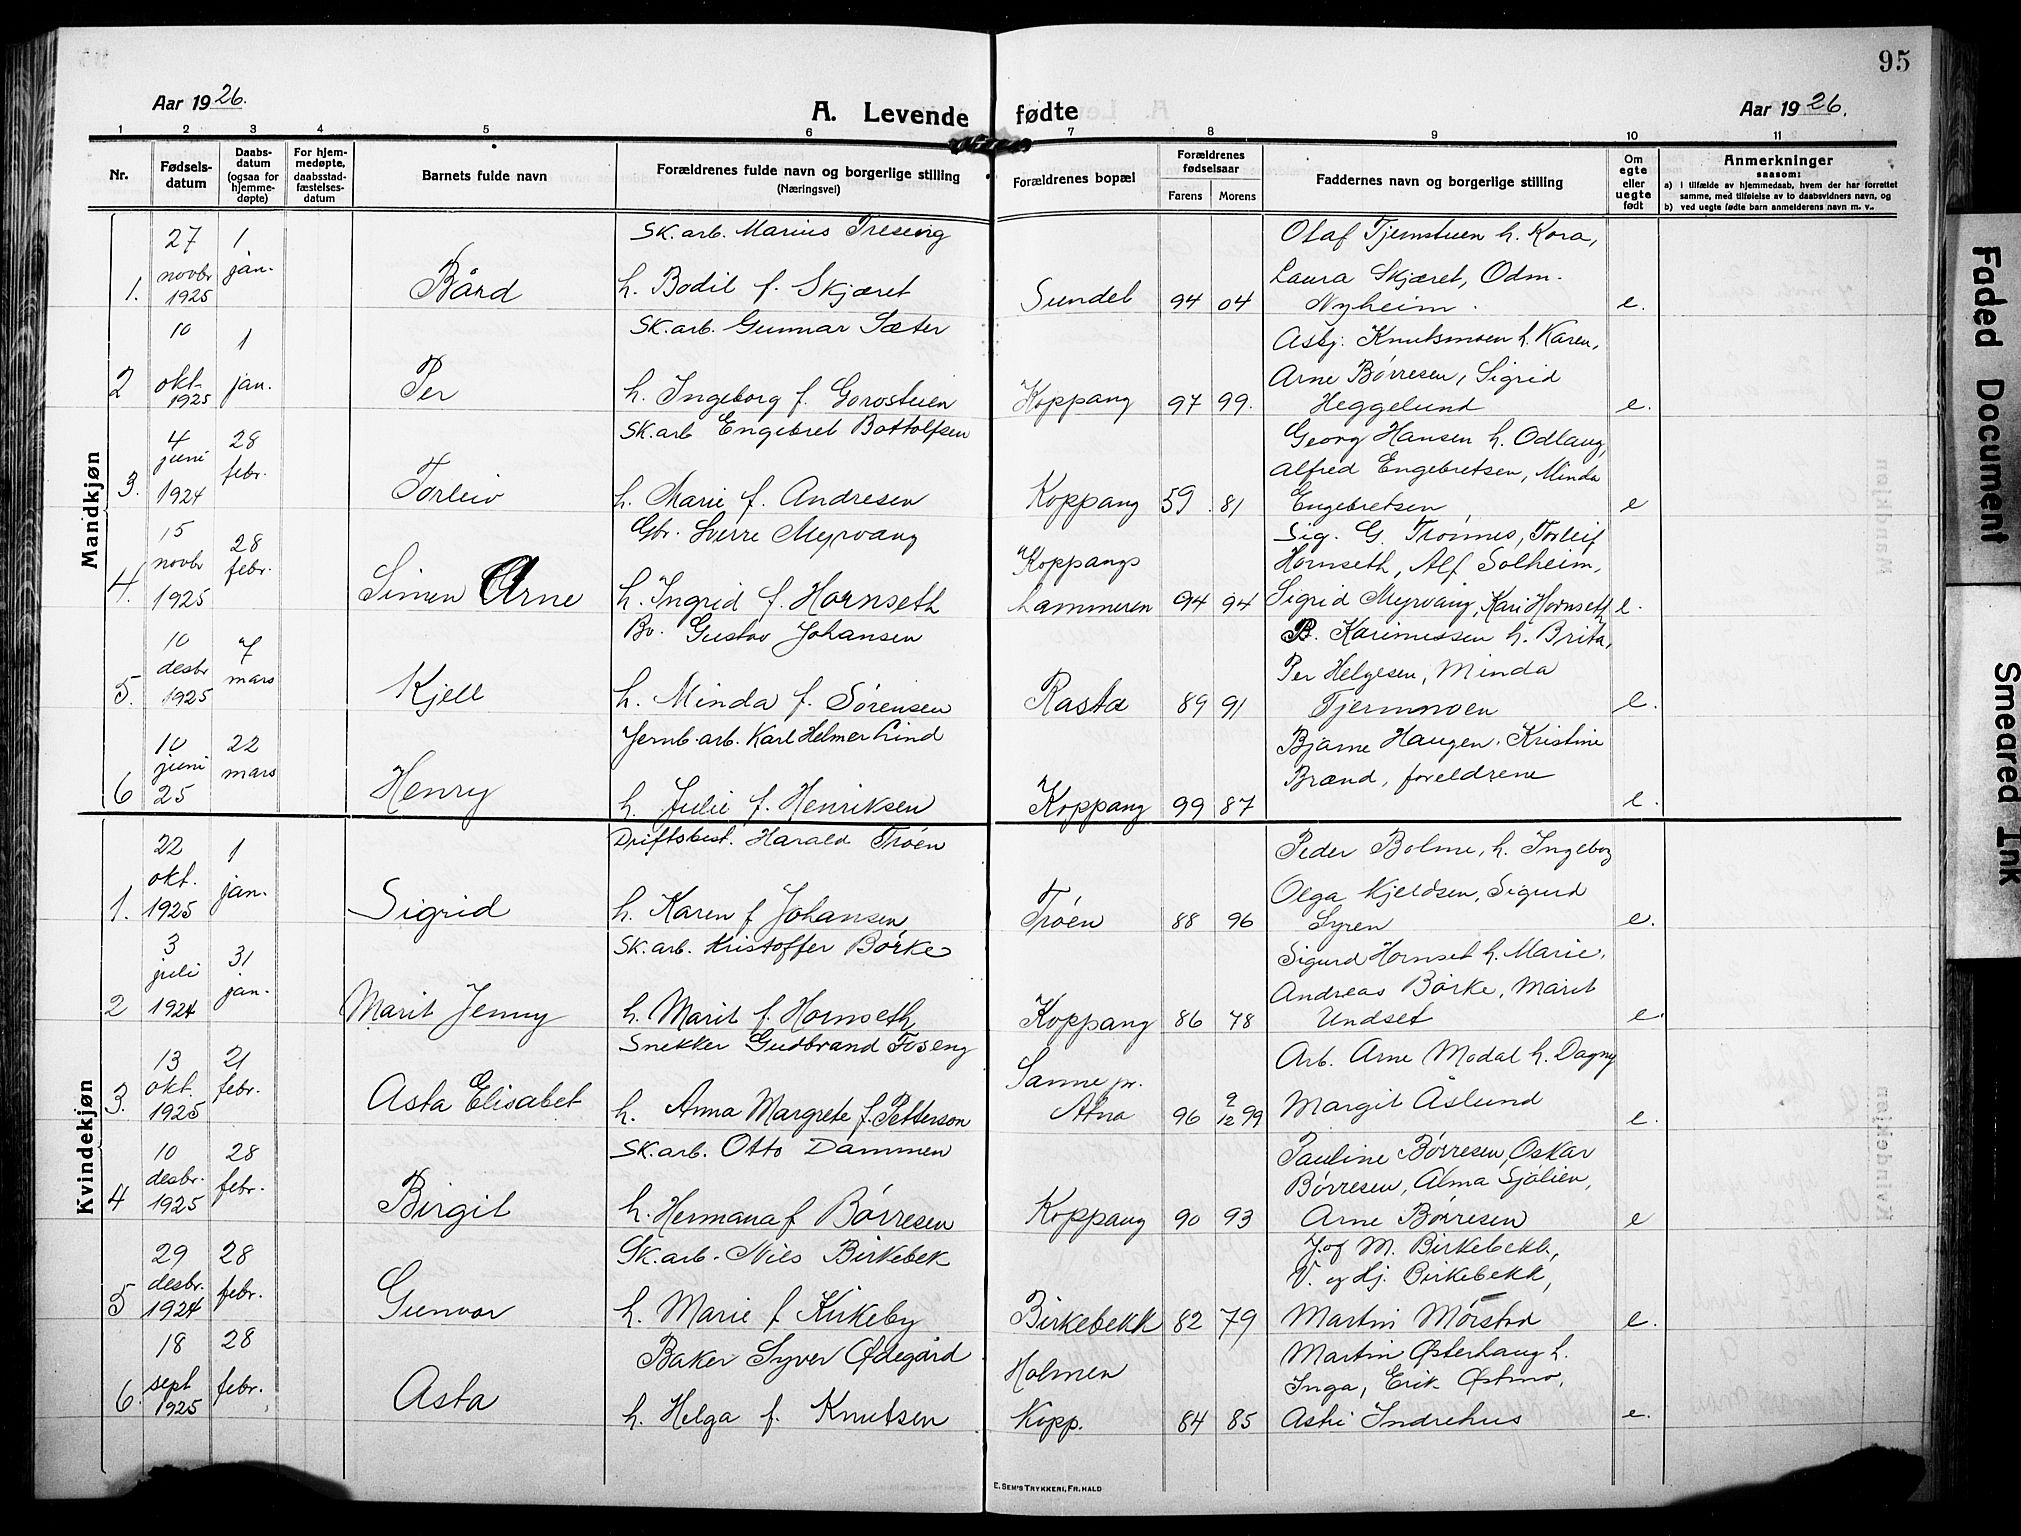 95
Aar 1926.
A. Levende fødte
Aar 1926.
1 2 3 4 5 6 7 8 9 10 11
Nr.
Fødsels-
datum
Daabs-
datum
(ogsaa for
hjemme-
døpte)
For hjem-
medøpte,
daabsstad-
fæstelses-
datum
Barnets fulde navn
Forældrenes fulde navn og borgerlige stilling
(Næringsvei)
Forældrenes bopæl
Forældrenes
fødselsaar
Farens Morens
Faddernes navn og borgerlige stilling
Om
egte
eller
uegte
født
Anmerkninger
saasom:
a) i tilfælde av hjemmedaab, hvem der har forrettet
samme, med tilføielse av to daabsvidners navn, og
b) ved uegte fødte barn anmelderens navn m. v..
Mandkjøn
1. 27 novbr 1925 1 jan. Bård
Sk.arb. Marius Treseng
h. Bodil f. Skjæret
Sundet 94 04
Olaf Tjernstuen h. Kora,
Laura Skjæret, Odm.
Nyheim. e.
2 10 okt. 1925 1 jan. Per
Sk.arb. Gunnar Sæter
h. Ingeborg f. Gorostuen
Koppang 97 99.
Asbj. Knutsmoen h. Karen,
Arne Børresen, Sigrid
Heggelund e.
3. 4 juni 1924 28 febr. Torleiv
Sk.arb Engebret Bottolfsen
h. Marie f. Andresen
Koppang 59 81
Georg Hansen h. Odlaug,
Alfred Engebretsen, Minda
Engebretsen e
4. 15 novbr 1925 28 febr. Simen Arne
Gbr. Sverre Myrvang
h. Ingrid f. Hornseth
Koppangs
kammeren 94 94
Sig. G. Trønnes, Torleif
Hornseth, Alf Solheim,
Sigrid Myrvang, Kari Hornseth e.
5. 10 desbr 1925 7 mars Kjell
Bv. Gustav Johansen
h. Minda f. Sørensen
Rasta 89 91
B. Karinussen h. Brita,
Per Helgesen, Minda
Tjernmoen e.
6 10 juni 25 22 mars Henry
Jernb.arb. Karl Helmer Lind
h. Julie f. Henriksen
Koppang 99 87
Bjarne Haugen, Kristine
Brænd, foreldrene
e.
Kvindekjøn
1. 22 okt. 1925 1 jan. Sigrid
Driftsbest. Harald Trøen
h. Karen f Johansen
Trøen 88 96
Peder Bolme, h. Ingeborg
Olga Kjeldsen, Sigurd
Syren e.
2 3 juli 1924 31 jan. Marit Jenny
Sk.arb. Kristoffer Børke
h. Marit f. Hornseth
Koppang 86 78
Sigurd Hornset h. Marie,
Andreas Børke, Marit
Undset e.
3. 13 okt. 1925 21 febr. Asta Elisabet
Snekker Gudbrand Foseng
h. Anna Margrete f. Petterson
Sanne pr.
Atna 96 9/12 99
Arb. Arne Modal h. Dagny
Margit Åslund
e.
4 10 desbr. 1925 28 febr. Birgit
Sk.arb. Otto Dammen
h. Hermana f Børresen
Koppang 90 93
Pauline Børresen, Oskar
Børresen, Alma Sjølien,
Arne Børresen e
5 29 desbr. 1924 28 febr. Gunvor
Sk.arb. Nils Birkebek
h. Marie f Kirkeby
Birkebekk 82 79
J. og M. Birkebekk,
V. og Hj. Birkebekk,
Martin Mørstad e.
6. 18 sept 1925 28 febr. Asta
Baker Syver Ødegård
h. Helga f. Knutsen
Holmen
Kopp. 84 85
Martin Østerhaug h.
Inga, Erik Østmo,
Asti Indrehus e.
E. SEM'S TRYKKERI, FR.HALD
Faded Document
Smeared Ink